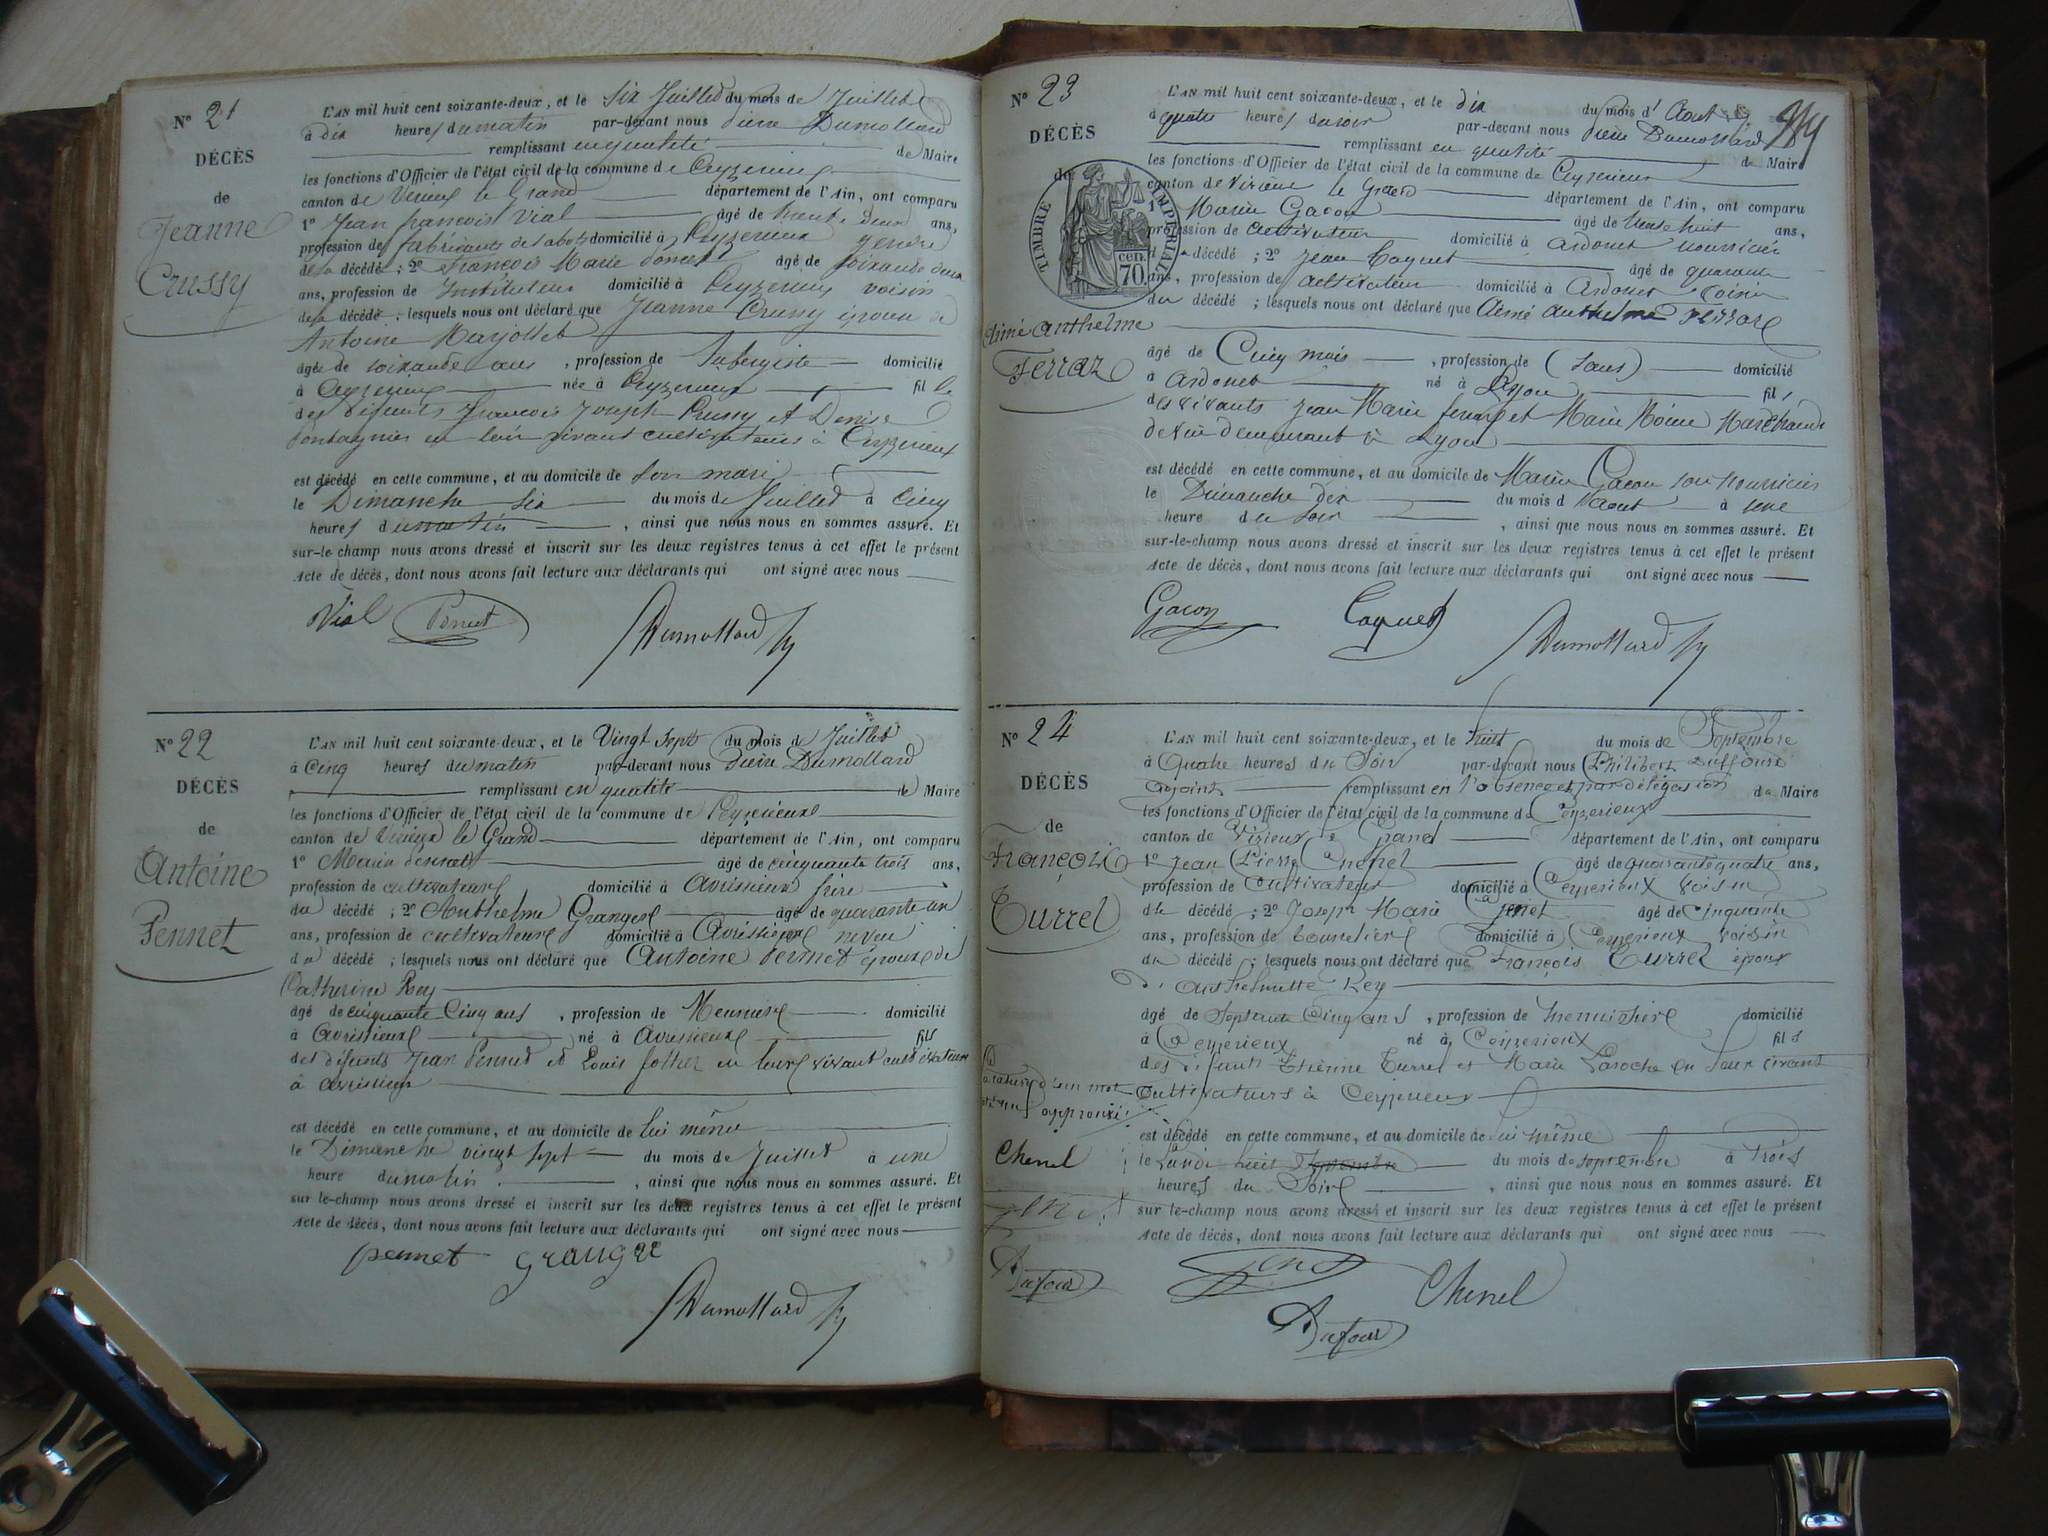 N° 21
DÉCÈS
de
Jeanne
Crussy
L'AN mil huit cent soixante-deux, et le Six Juillet du mois de Juillet
à dix heures du matin par-devant nous Pierre Dumollard
remplissant en qualité de Maire
les fonctions d'Officier de l'état civil de la commune de Ceyzerieux
canton de Virieux le Grand département de l'Ain, ont comparu
1° Jean françois Vial âgé de trente deux ans,
profession de fabricants de sabots domicilié à Ceyzerieux gendre
de la décédé ; 2° François Marie Poncet âgé de soixante deux
ans, profession de Instituteur domicilié à Ceyzerieux voisin
de la décédé ; lesquels nous ont déclaré que Jeanne Crussy épouse de
Antoine Marjollet
âgé de soixante ans , profession de Aubergiste domicilié
à Ceyzerieux née à Ceyzerieux fille
des défunts François Joseph Crussy et Denise
en leur vivant cultivateurs à Ceyzerieux
est décédé en cette commune, et au domicile de son mari
le Dimanche six du mois de Juillet à cinq
heures du matin , ainsi que nous nous en sommes assuré. Et
sur-le-champ nous avons dressé et inscrit sur les deux registres tenus à cet effet le présent
Acte de décès, dont nous avons fait lecture aux déclarants qui ont signé avec nous
Vial Poncet Dumollard
N° 22
DÉCÈS
de
Antoine
Pennet
L'AN mil huit cent soixante-deux, et le Vingt sept du mois de Juillet
à Cinq heures du matin par-devant nous Pierre Dumollard
remplissant en qualité de Maire
les fonctions d'Officier de l'état civil de la commune de Ceyzerieux
canton de Virieux le Grand département de l'Ain, ont comparu
1° Marin Pennet âgé de cinquante trois ans,
profession de cultivateur domicilié à Avrissieux frère
du décédé ; 2° Anthelme Granger âgé de quarante un
ans, profession de cultivateur domicilié à Avrissieux neveu
du décédé ; lesquels nous ont déclaré que Antoine Pennet époux de
Catherine Rey
âgé de cinquante Cinq ans , profession de Menuisier domicilié
à Avrissieux né à Avrissieux fils
des défunts Jean Pennet et Louis en leurs vivant cultivateurs
à avrissieux
est décédé en cette commune, et au domicile de lui même
le Dimanche vingt sept du mois de Juillet à une
heure du matin , ainsi que nous nous en sommes assuré. Et
sur le-champ nous avons dressé et inscrit sur les deux registres tenus à cet effet le présent
Acte de décès, dont nous avons fait lecture aux déclarants qui ont signé avec nous
pennet granger
Dumollard
N° 23
DÉCÈS
de
TIMBRE IMPÉRIAL
70 cen.
Aimé anthelme
Ferraz
L'AN mil huit cent soixante-deux, et le dix du mois d'Aout
à quatre heures du soir par-devant nous Pierre Dumollard
remplissant en qualité de Maire
les fonctions d'Officier de l'état civil de la commune de Ceyzerieux
canton de Virieux le Grand département de l'Ain, ont comparu
1° Marin Gacon âgé de trente huit ans,
profession de cultivateur domicilié à Ardouet nourricier
du décédé ; 2° Jean Coquet âgé de quarante
ans, profession de cultivateur domicilié à Ardouet voisin
du décédé ; lesquels nous ont déclaré que Aimé Anthelme Ferraz
âgé de Cinq mois , profession de (Sans) domicilié
à Ardouet né à Lyon fils
des vivants Jean Marie ferraz et Marie Moine Marchands
demeurant à Lyon
est décédé en cette commune, et au domicile de Marin Gacon son nourricier
le Dimanche dix du mois d'Aout à une
heure du soir , ainsi que nous nous en sommes assuré. Et
sur-le-champ nous avons dressé et inscrit sur les deux registres tenus à cet effet le présent
Acte de décès, dont nous avons fait lecture aux déclarants qui ont signé avec nous
Gacon Coquet Dumollard
N° 24
DÉCÈS
de
François
Turrel
L'AN mil huit cent soixante-deux, et le huit du mois de Septembre
à Quatre heures du Soir par-devant nous Philibert Duffour
Ajoint remplissant en l'absence et par délégasion du Maire
les fonctions d'Officier de l'état civil de la commune de Ceyzerieux
canton de Virieux le Grand département de l'Ain, ont comparu
1° Jean Pierre Chenel âgé de quarante quatre ans,
profession de Cultivateur domicilié à Ceyzerieux voisin
du décédé ; 2° Joseph Marie Genet âgé de Cinquante
ans, profession de bourrelier domicilié à Ceyzerieux voisin
du décédé ; lesquels nous ont déclaré que François Turrel époux
d'Anthelmette Rey
âgé de Septente Cinq ans , profession de Menuisier domicilié
à Ceyzerieux né à Ceyzerieux fils
des défunts Etienne Turrel et Marie Laroche en leur vivant
Cultivateurs à Ceyzerieux
est décédé en cette commune, et au domicile de lui même
le Lundi huit Septembre du mois de septembre à Trois
heures du Soir , ainsi que nous nous en sommes assuré. Et
sur le-champ nous avons dressé et inscrit sur les deux registres tenus à cet effet le présent
Acte de décès, dont nous avons fait lecture aux déclarants qui ont signé avec nous
d'un mot
approuvé
Chenel
Dufour
Genet Chenel
Dufour